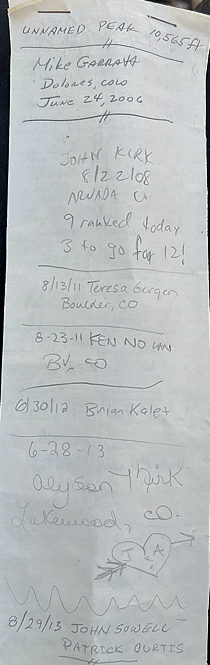 UNNAMED PEAK 10,565ft
Mike GARRATT
Dolores, COLO
June 24, 2006
JOHN KIRK
8/22/08
ARVADA CO
9 ranked today
3 to go for 12!
8/13/11 Teresa Gergen
Boulder, CO
8-23-11 KEN NOLAN
BV, CO
6/30/12 Brian Kalet
6-28-13
Alyson Kirk
Lakewood, CO.
J A
8/29/13 JOHN SOWELL
PATRICK CURTIS